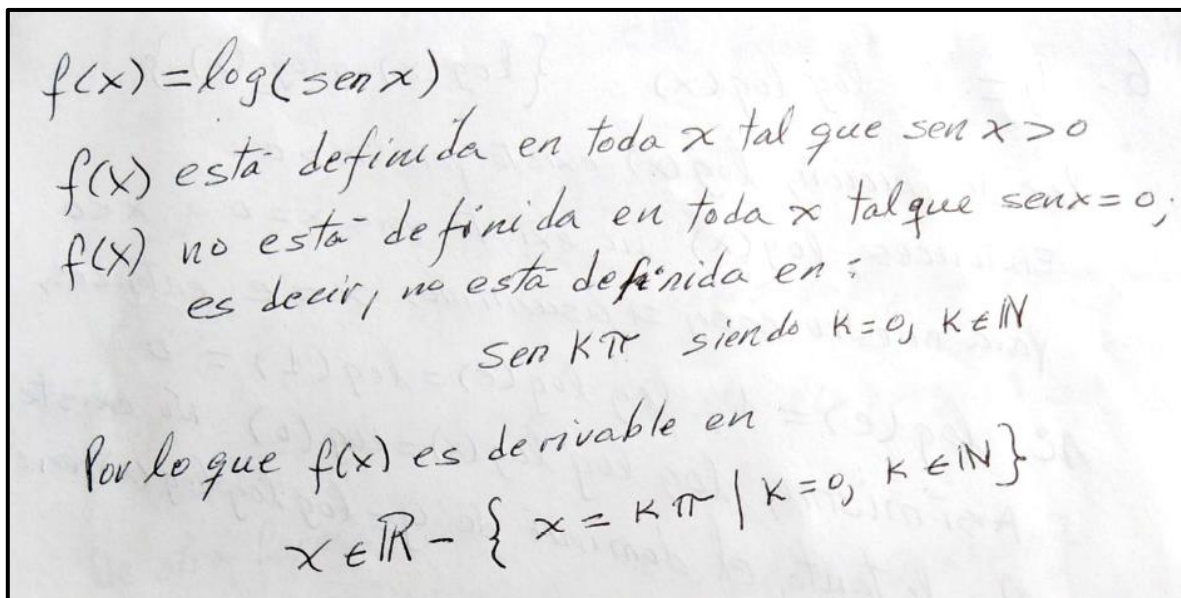 f(x) = log(sen x)
f(x) está definida en toda x tal que sen x > 0
f(x) no está definida en toda x tal que sen x = 0;
es decir, no está definida en:
sen Kπ siendo K=0, K ∈ ℕ
Por lo que f(x) es derivable en
x ∈ ℝ - { x = Kπ | K=0, K ∈ ℕ }